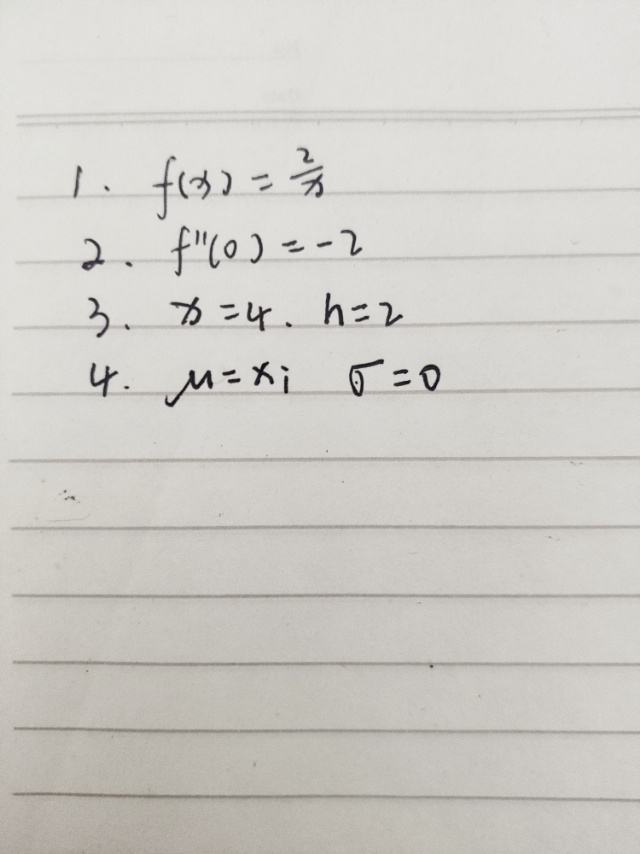 1. f(x) = 2/x
2. f''(0) = -2
3. x = 4. h = 2
4. μ = xi σ = 0